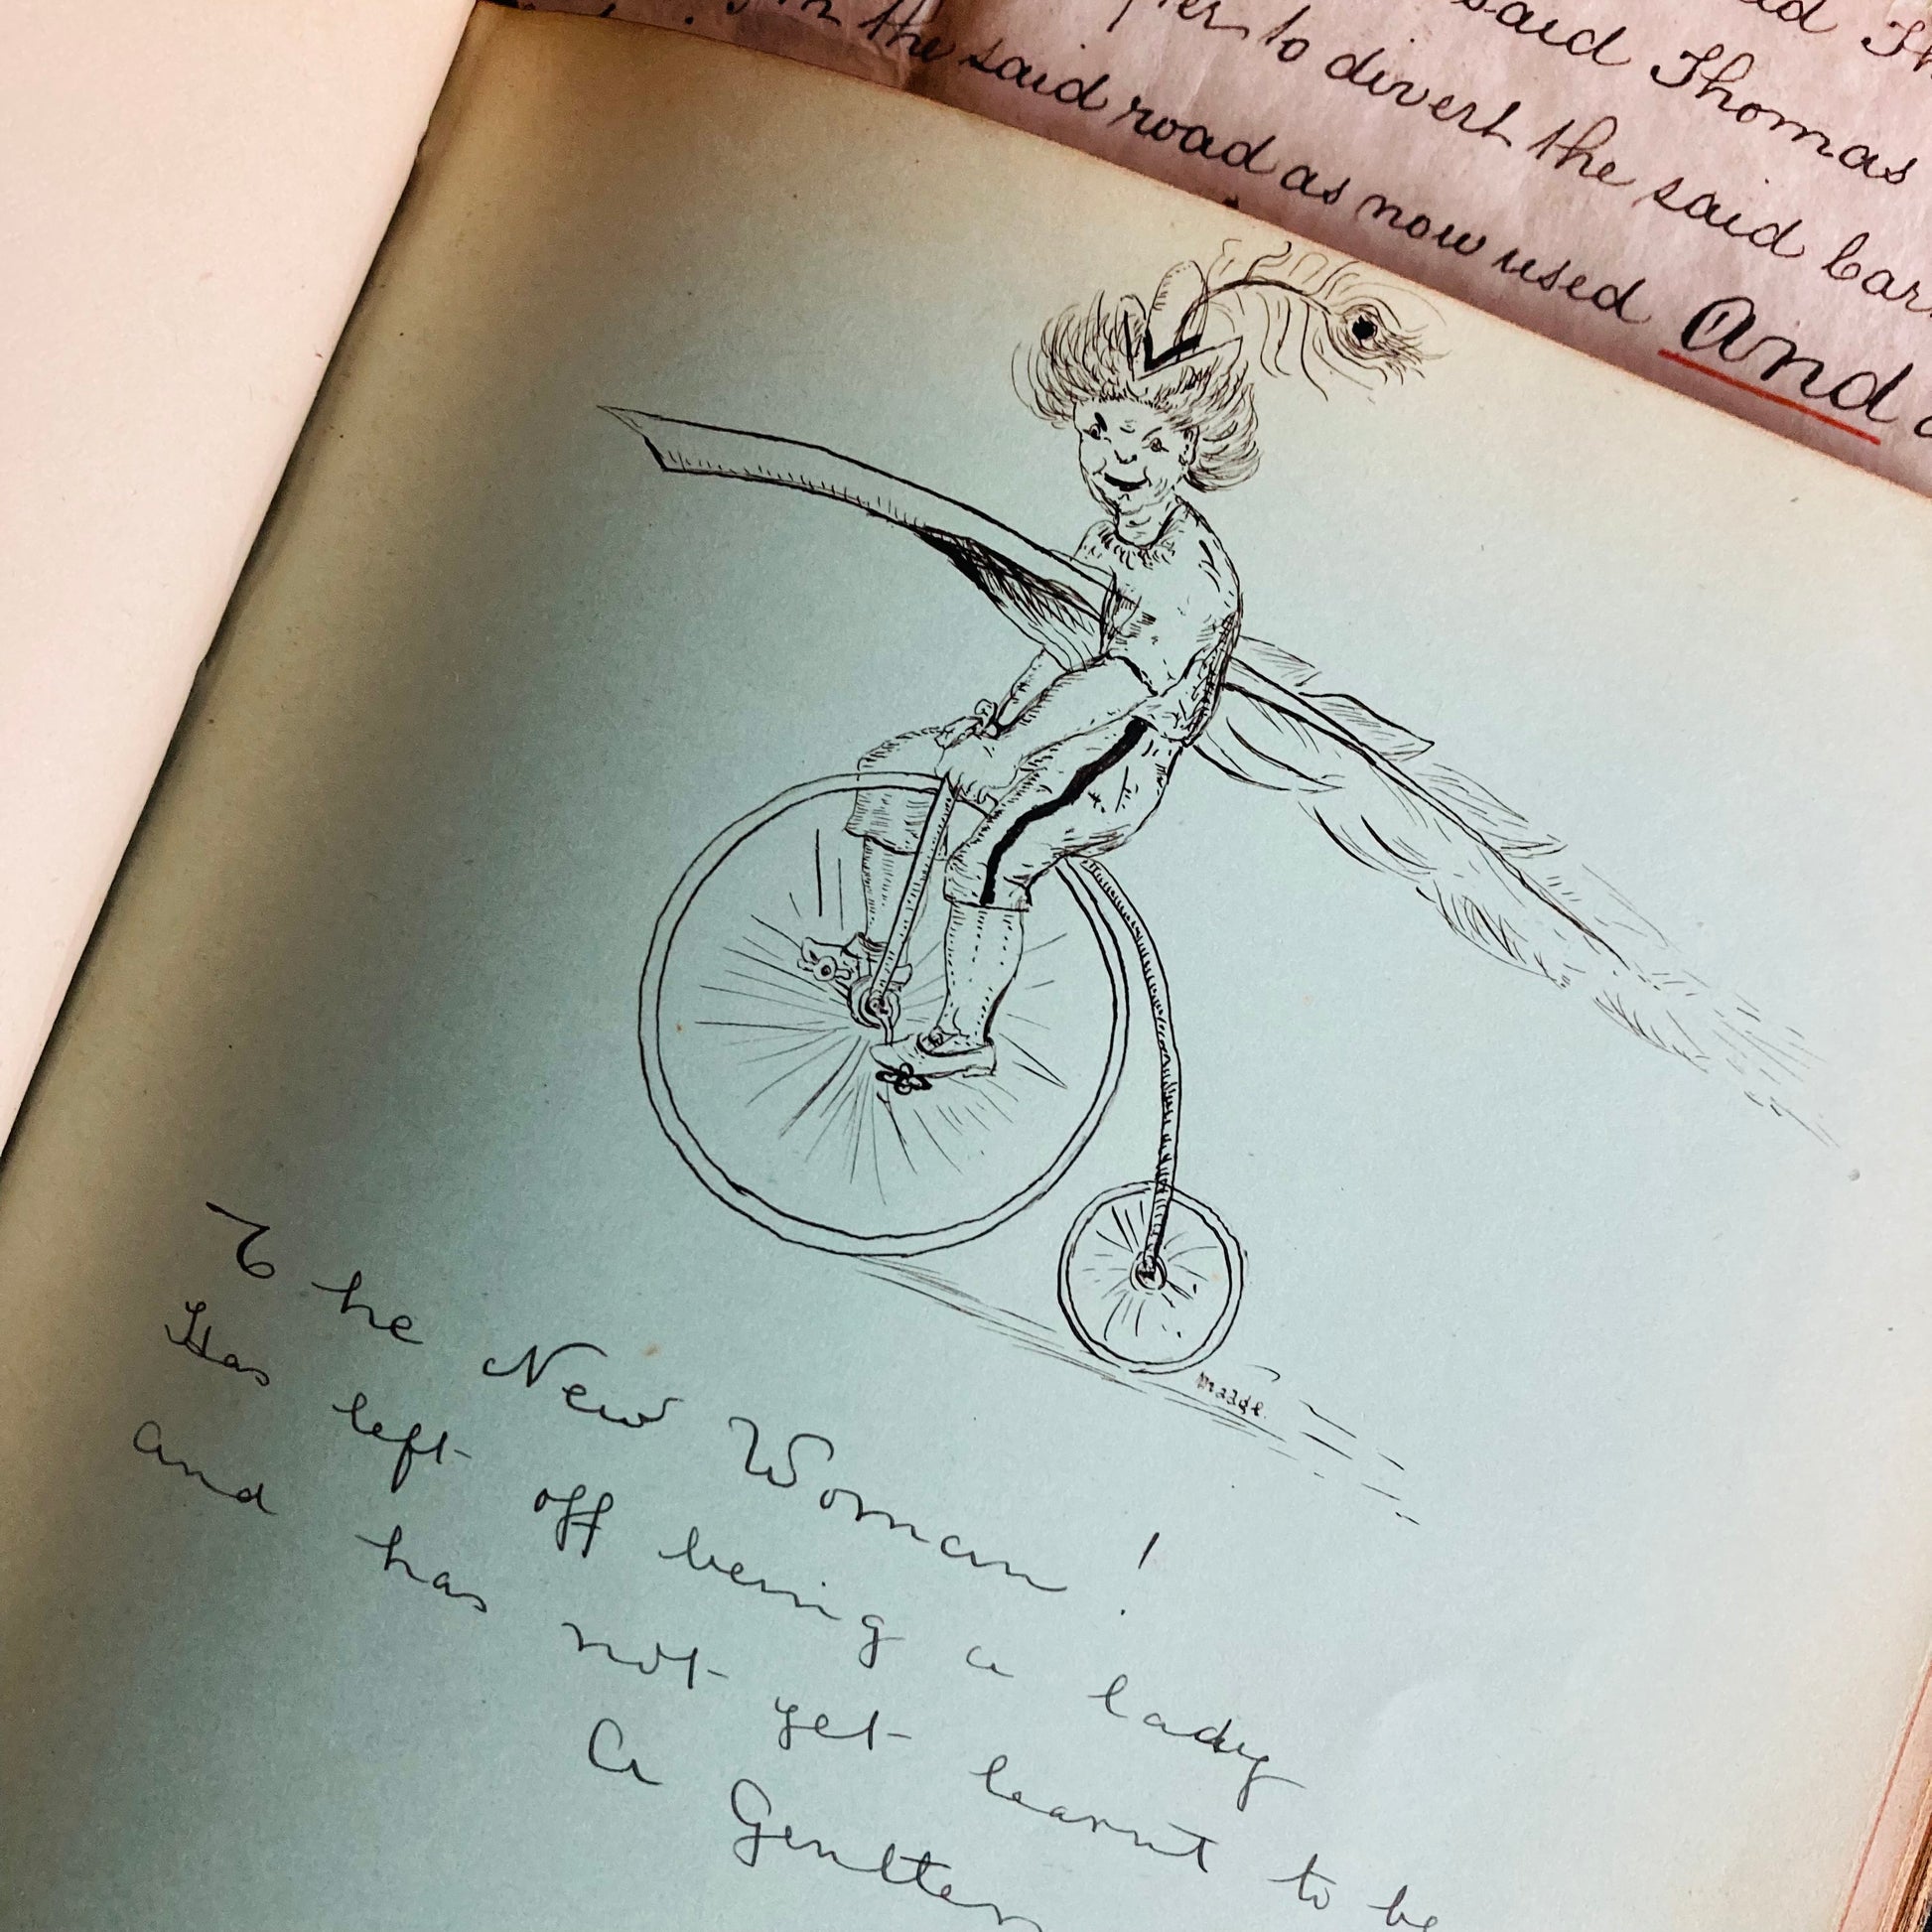 said Thomas
to divert the said bar
in the said road as now used And
Madge.
The New Woman!
Has left off being a lady
and has not yet learnt to be
a Gentlem